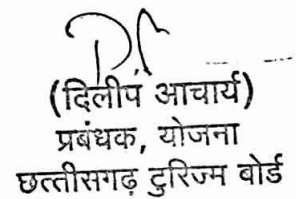 (दिलीप आचार्य)
प्रबंधक, योजना
छत्तीसगढ़ टुरिज्म बोर्ड